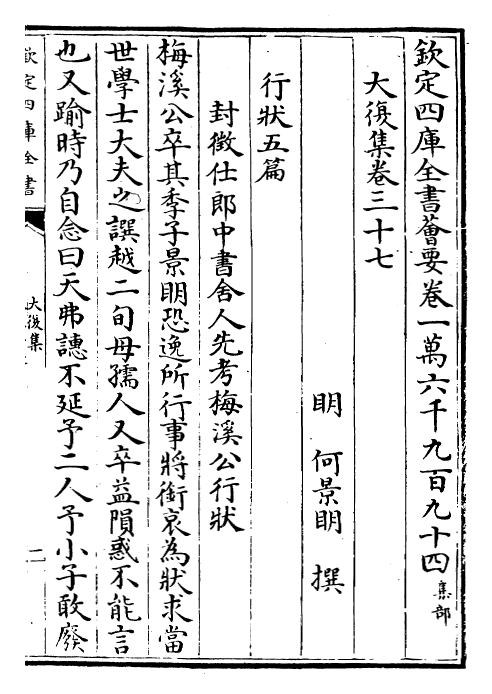 欽定四庫全書薈要卷一萬六千九百九十四集部
大復集卷三十七
明 何景明 撰
行狀五篇
封徵仕郎中書舍人先考梅溪公行狀
梅溪公卒其季子景明恐逸所行事將銜哀為狀求當
世學士大夫之譔越二旬母孺人又卒益隕惑不能言
也又踰時乃自念曰天弗譓不延予二人予小子敢廢
欽定四庫全書
大復集
二